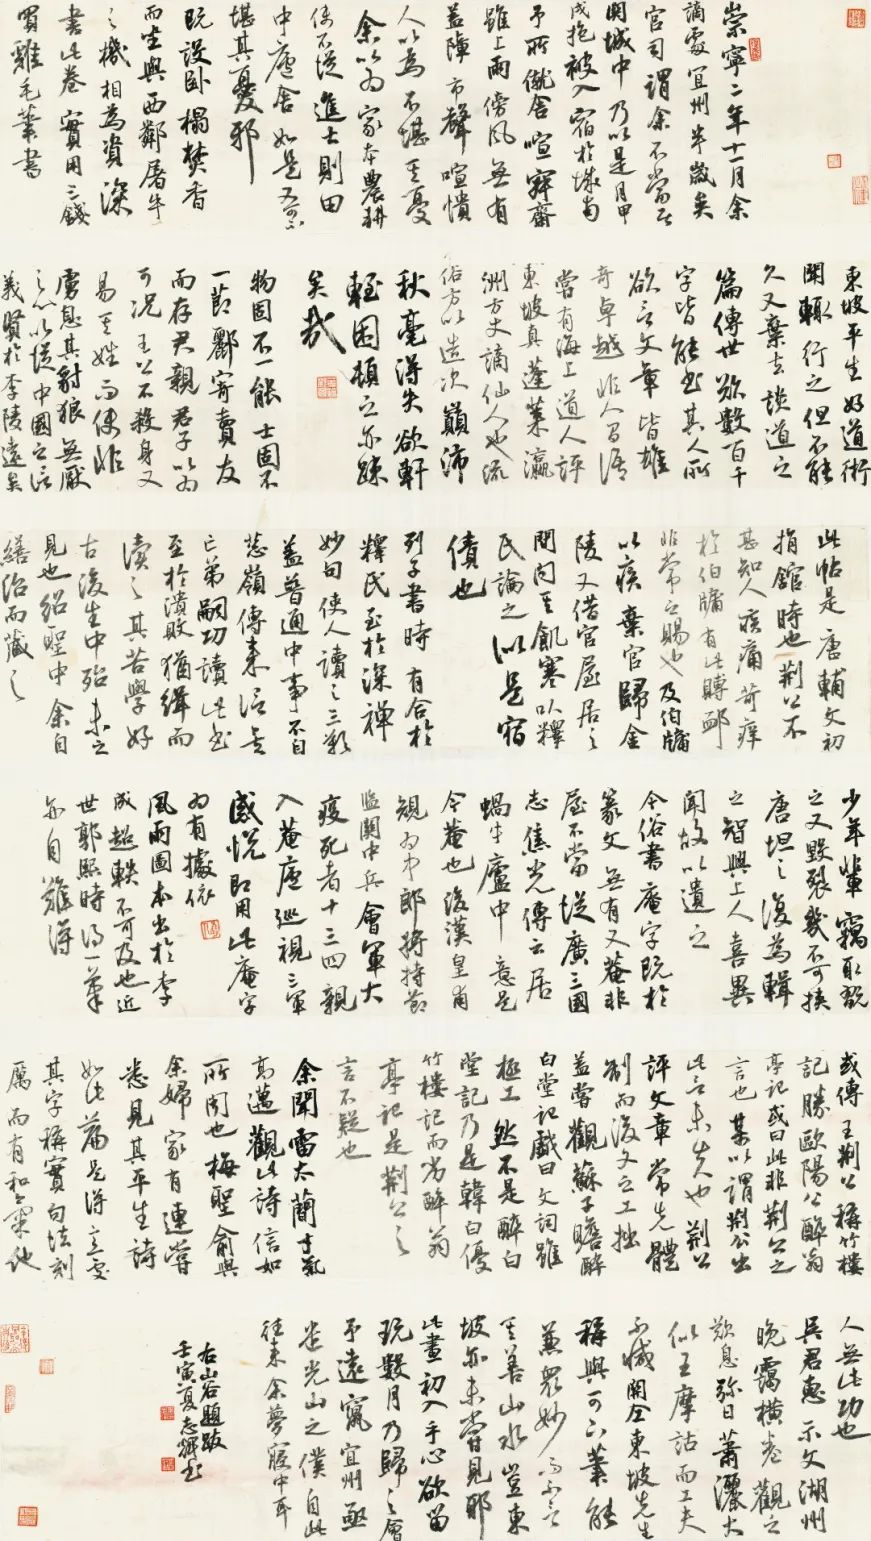 崇寧二年十一月余
謫處宜州半歲矣
官司謂余不當居
關城中乃以是月甲
戌抱被入宿於城南
予所僦舍喧寂齋
雖上雨傍風無有
蓋障市聲喧憒
人以為不堪其憂
余以為家本農耕
使不從進士則田
中廬舍如是又可不
堪其憂邪
既設卧榻焚香
而坐與西鄰屠牛
之機相為資深
書此卷實用三錢
買雞毛筆書
東坡平生好道術
聞輒行之但不能
久又棄去談道之
篇傳世欲數百千
字皆能書其人所
欲言文章皆雄
奇卓越非人間語
嘗有海上道人評
東坡真蓬萊瀛
洲方丈謫仙人也流
俗方以造次顛沛
秋毫得失欲軒
輊困頓之亦疎
矣哉
物固不一能士固不
一節酈寄賣友
而存君親君子以為
可況王公不殺身又
易其姓而使非
虜息其豺狼無厭
之心以從中國之信
義賢於李陵遠矣
此帖是唐輔文初
捐館時也荊公不
甚知人疾痛苛癢
於伯牖有此賻恤
非常之賜也及伯牖
以疾棄官歸金
陵又借官屋居之
間問其飢寒以釋
氏論之似是宿
債也
列子書時有合於
釋氏至於深禪
妙句使人讀之三歎
蓋普通中事不自
葱嶺傳來信矣
亡弟嗣功讀此書
至於潰敗猶緝而
讀之其苦學好
古後生中殆未之
見也紹聖中余自
繕治而藏之
少年輩竊取玩
之又毀裂幾不可挾
唐坦之復為輯
之智興上人喜異
聞故以遺之
今俗書庵字既於
篆文無有又菴非
屋不當從廣三國
志焦光傳云居
蝸牛廬中意是
今菴也後漢皇甫
規為中郎將持節
監關中兵會軍大
疫死者十三四親
入菴廬巡視三軍
感悅即用此庵字
為有據依
風雨圖本出於李
成超軼不可及也近
世郭熙時得一筆
亦自難得
或傳王荊公稱竹樓
記勝歐陽公醉翁
亭記或曰此非荊公之
言也某以謂荊公出
此言未失也荊公
評文章常先體
制而後文之工拙
蓋嘗觀蘇子瞻醉
白堂記戲曰文詞雖
極工然不是醉白
堂記乃是韓白優
竹樓記而劣醉翁
亭記是荊公之
言不疑也
余聞雷太簡才氣
高邁觀此詩信如
所聞也梅聖俞與
余婦家有連嘗
悉見其平生詩
如此篇是得意處
其字稱實句法刻
厲而有和氣他
人無此功也
吳君惠示文湖州
晚靄橫卷觀之
歎息彌日蕭灑大
似王摩詰而工夫
不減關仝東坡先生
稱與可下筆能
兼眾妙而不言
其善山水豈東
坡亦未嘗見邪
此畫初入手心欲留
玩數月乃歸之會
予遠竄宜州亟
遣光山之僕自此
往來余夢寐中耳
右山谷題跋
壬寅夏志輝書